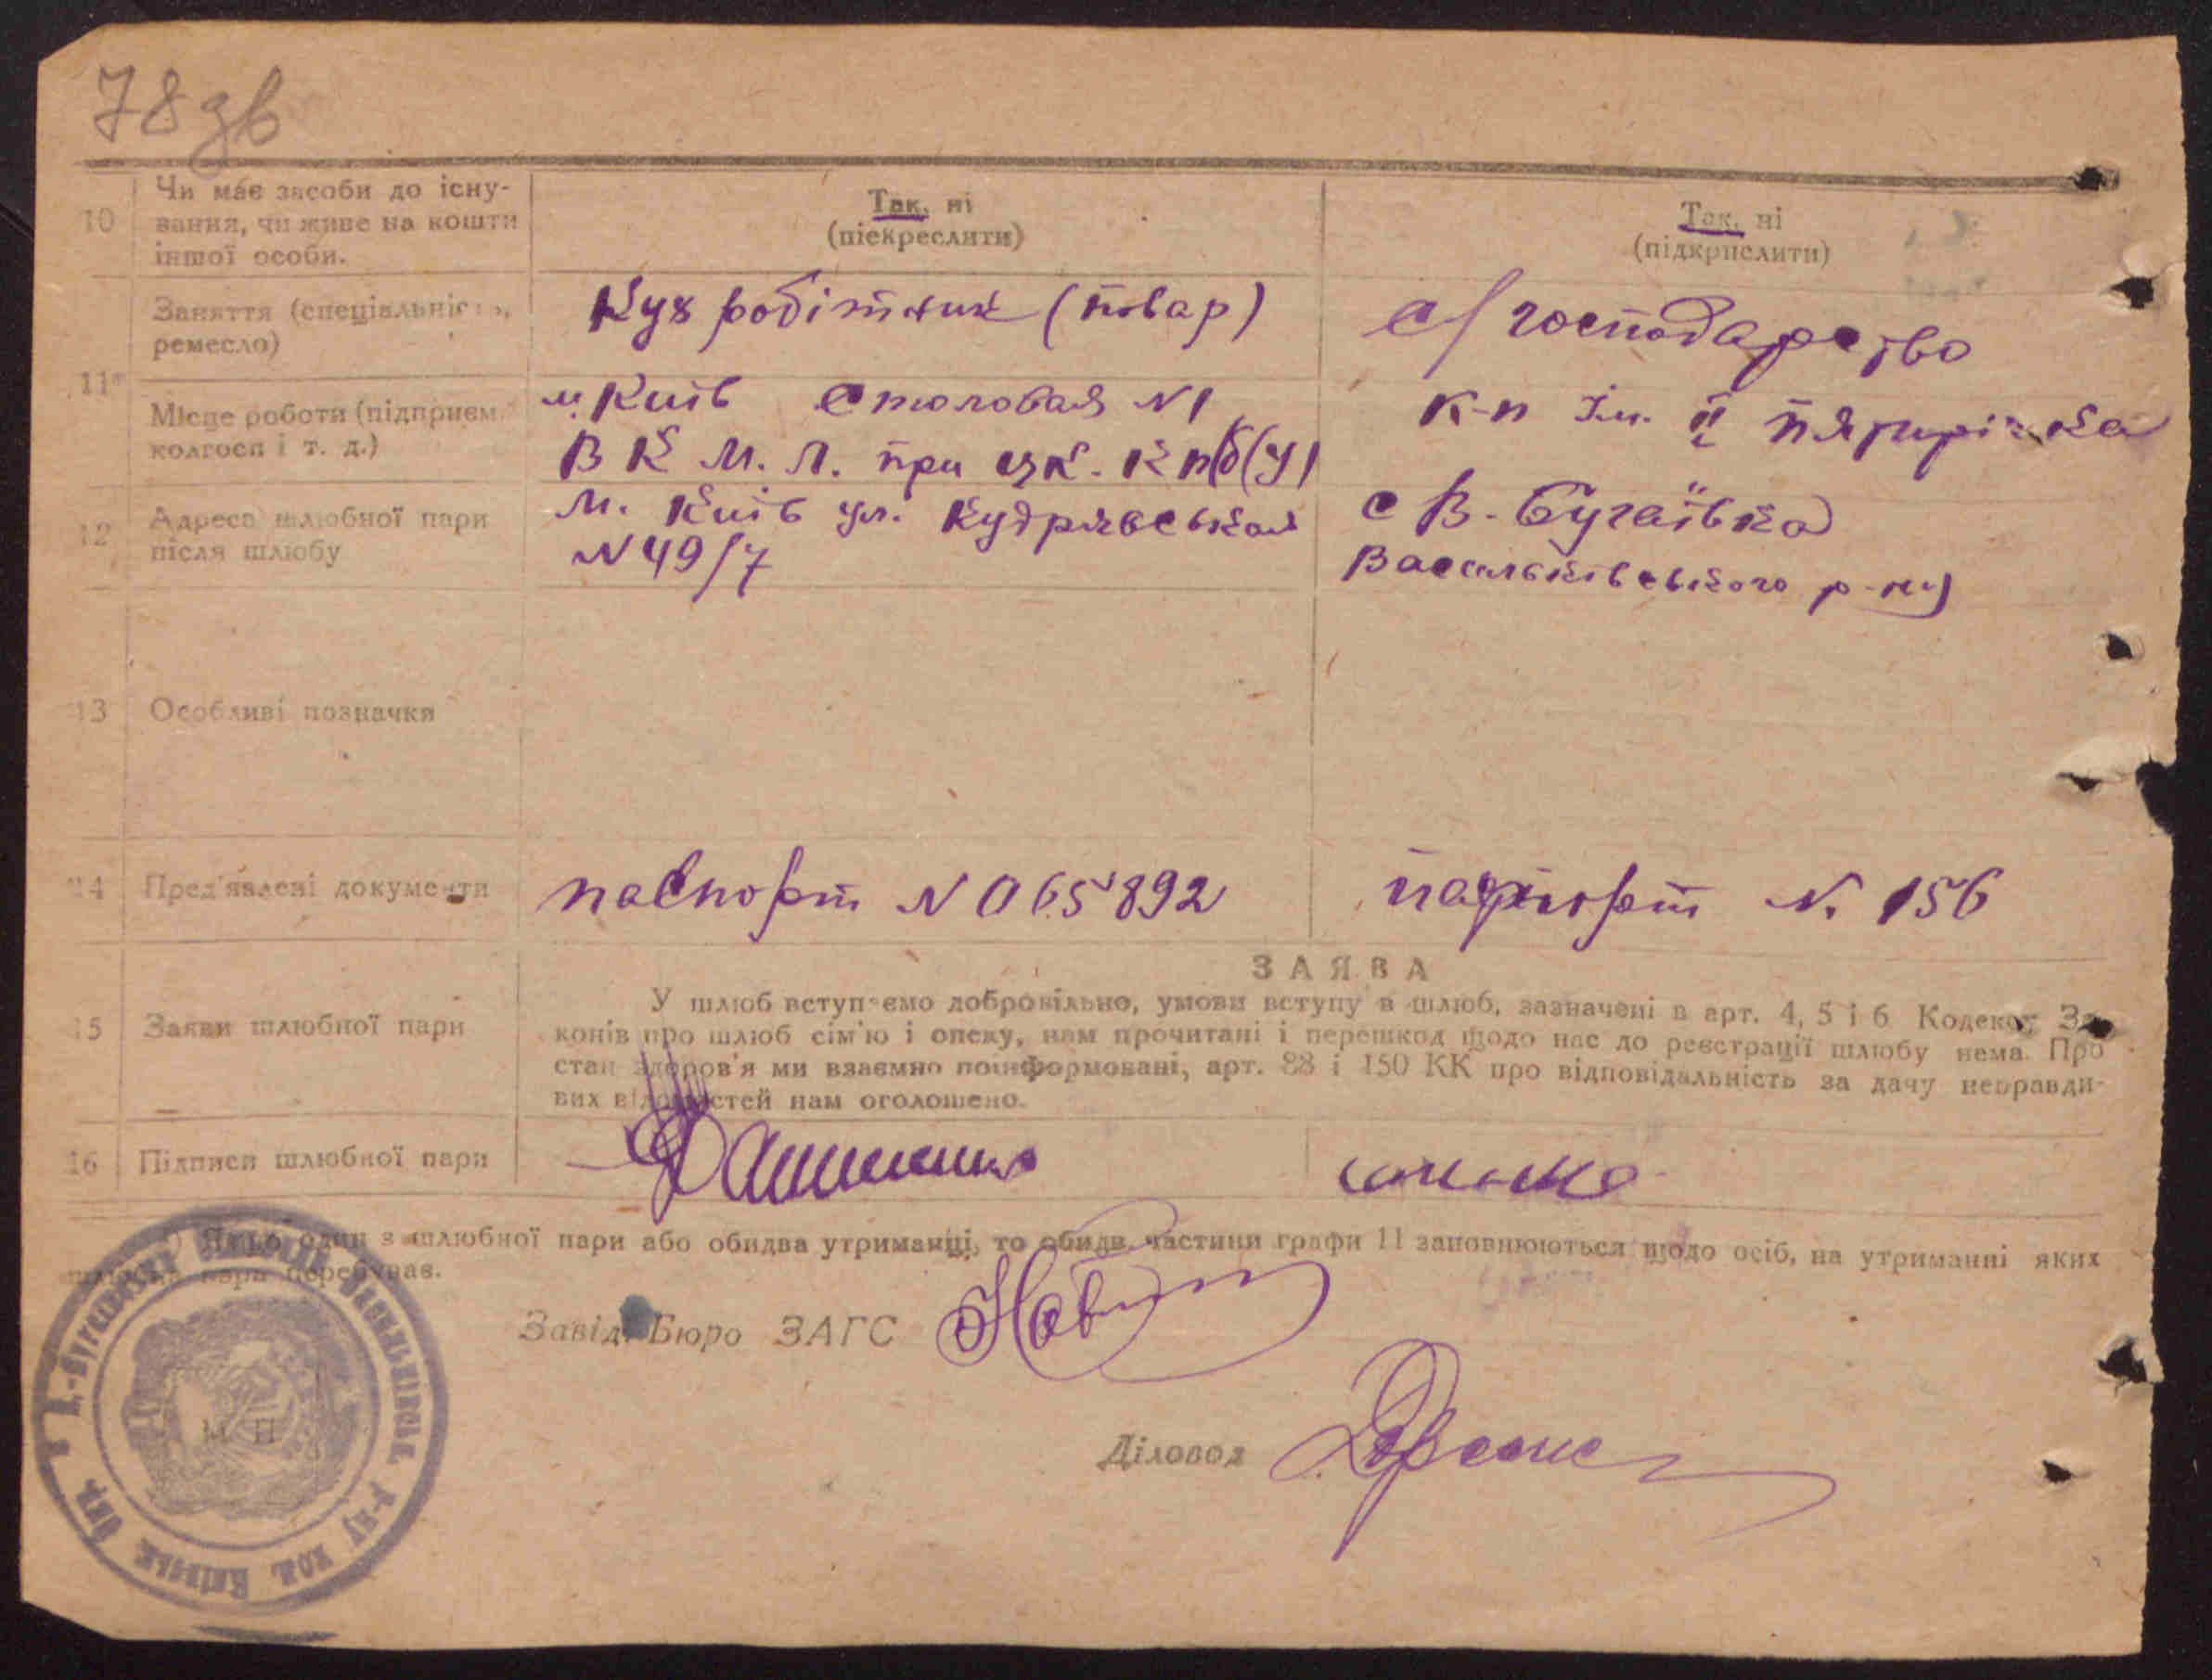 78 зв
10 Чи має засоби до існу-
вання, чи живе на кошти
іншої особи.
Так, ні
(піскреслити)
Так, ні
(підкрислити)
11*
Заняття (спеціальність,
ремесло)
Кух робітник (повар)
с/господарство
Місце роботи (підприєм
колгосп і т. д.)
м. Київ Столовая N1
В К М. Л. при ЦК. К П(б(У)
к-п Ім. II пятирічка
12 Адреса шлюбної пари
після шлюбу
м. Київ ул. Кудрявська
N 49/7
с В-Бугаївка
Васильківського р-ну
13 Особливі позначки
14 Пред'явлені документи
паспорт N 065892
паспорт N. 156
ЗАЯВА
15 Заяви шлюбної пари
У шлюб вступаємо добровільно, умови вступу в шлюб, зазначені в арт. 4, 5 і 6 Кодексу За-
конів про шлюб сім'ю і опеку, нам прочитані і перешкод щодо нас до реєстрації шлюбу нема. Про
стан здоров'я ми взаємно поінформовані, арт. 88 і 150 КК про відповідальність за дачу неправди-
вих відомостей нам оголошено.
16 Підписи шлюбної пари
Якщо один з шлюбної пари або обидва утриманці, то обидві частини графи 11 заповнюються щодо осіб, на утриманні яких
шлюбна пара перебував.
Завід. Бюро ЗАГС
М П
Діловод